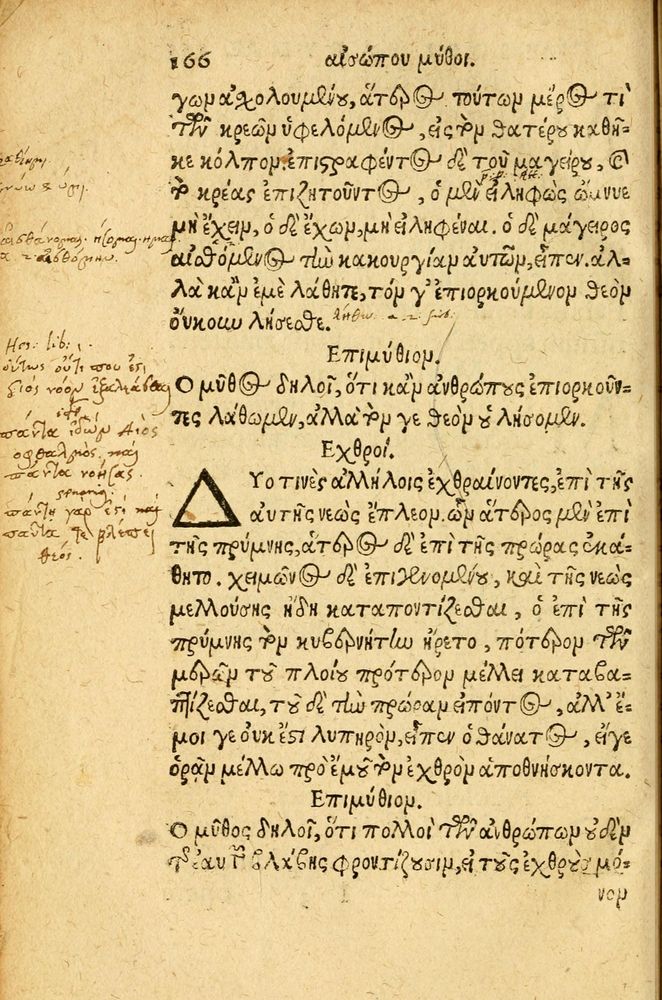 166 αἰσώπου μῦθοι.
γων ἀχολουμένου, ἅτερος τούτων μέρος τὶ
τῶν κρεῶν ὑφελόμενος, εἰς τὸν θατέρου καθῆ-
κε κόλπον. ἐπιστραφέντος δὲ τοῦ μαγείρου, καὶ
τὸ κρέας ἐπιζητοῦντος, ὁ μὲν εἰληφὼς ὤμνυε
μὴ ἔχειν, ὁ δὲ ἔχων, μὴ εἰληφέναι. ὁ δὲ μάγειρος
αἰσθόμενος τὴν κακουργίαν αὐτῶν, εἶπεν. ἀλ-
λὰ κἂν ἐμὲ λάθητε, τόν γ' ἐπιορκούμενον θεὸν
οὔκουν λήσεσθε.
Ἐπιμύθιον.
Ὁ μῦθος δηλοῖ, ὅτι κἂν ἀνθρώπους ἐπιορκοῦν-
τες λάθωμεν, ἀλλὰ τόν γε θεὸν οὐ λήσομεν.
Ἐχθροί.
Δύο τινὲς ἀλλήλοις ἐχθραίνοντες, ἐπὶ τῆς
αὐτῆς νεὼς ἔπλεον. ὧν ἅτερος μὲν ἐπὶ
τῆς πρύμνης, ἅτερος δὲ ἐπὶ τῆς πρώρας ἐκά-
θητο. χειμῶνος δὲ ἐπιγενομένου, καὶ τῆς νεὼς
μελλούσης ἤδη καταποντίζεσθαι, ὁ ἐπὶ τῆς
πρύμνης τὸν κυβερνήτην ἤρετο, πότερον τῶν
μερῶν τοῦ πλοίου πρότερον μέλλει καταβα-
πτίζεσθαι, τοῦ δὲ τὴν πρώραν εἰπόντος, ἀλλ' ἔ-
μοι γε οὐκ ἔστι λυπηρὸν, εἶπεν ὁ θάνατος, εἴγε
ὁρᾶν μέλλω πρὸ ἐμοῦ τὸν ἐχθρὸν ἀποθνήσκοντα.
Ἐπιμύθιον.
Ὁ μῦθος δηλοῖ, ὅτι πολλοὶ τῶν ἀνθρώπων οὐδὲν
τῆς ἑαυτῶν βλάβης φροντίζουσιν, εἰ τοὺς ἐχθροὺς μό-
νον
Hes: lib: 1.
πάντα ἰδὼν Διὸς
ὀφθαλμὸς καὶ
πάντα νοήσας.
πάντη γάρ ἐστι καὶ
πάντα τε βλέπει
θεός.